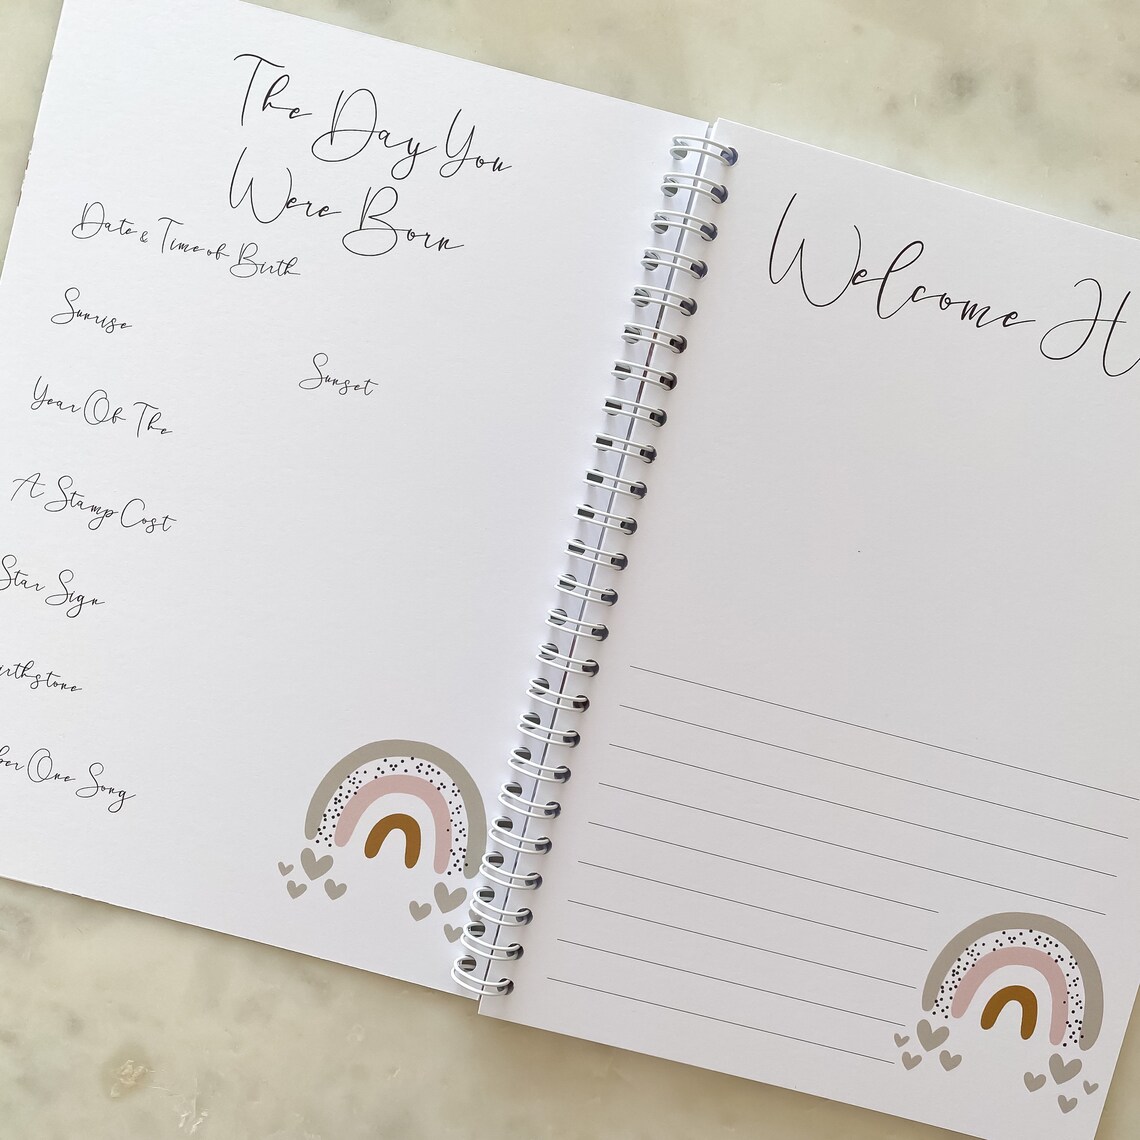 The Day You
Were Born
Date & Time of Birth
Sunrise
Sunset
Year Of The
A Stamp Cost
Star Sign
One Song
Welcome